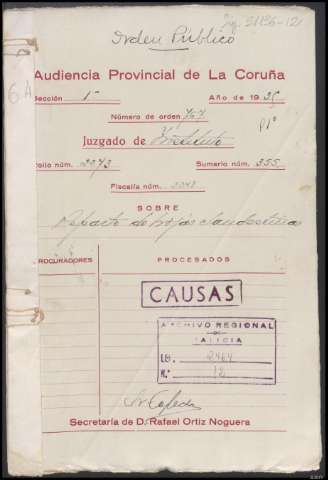 31136-12
Orden Público
Audiencia Provincial de La Coruña
6A
Sección 1ª Año de 1935
Número de orden 767
Pl°
Juzgado de Instituto
Folio núm. 2073 Sumario núm. 355
Fiscalía núm.
SOBRE
Reparto de hojas clandestinas
PROCURADORES PROCESADOS
CAUSAS
ARCHIVO REGIONAL
DE
GALICIA
LEG. 2464
N.° 12
Secretaría de D. Rafael Ortiz Noguera